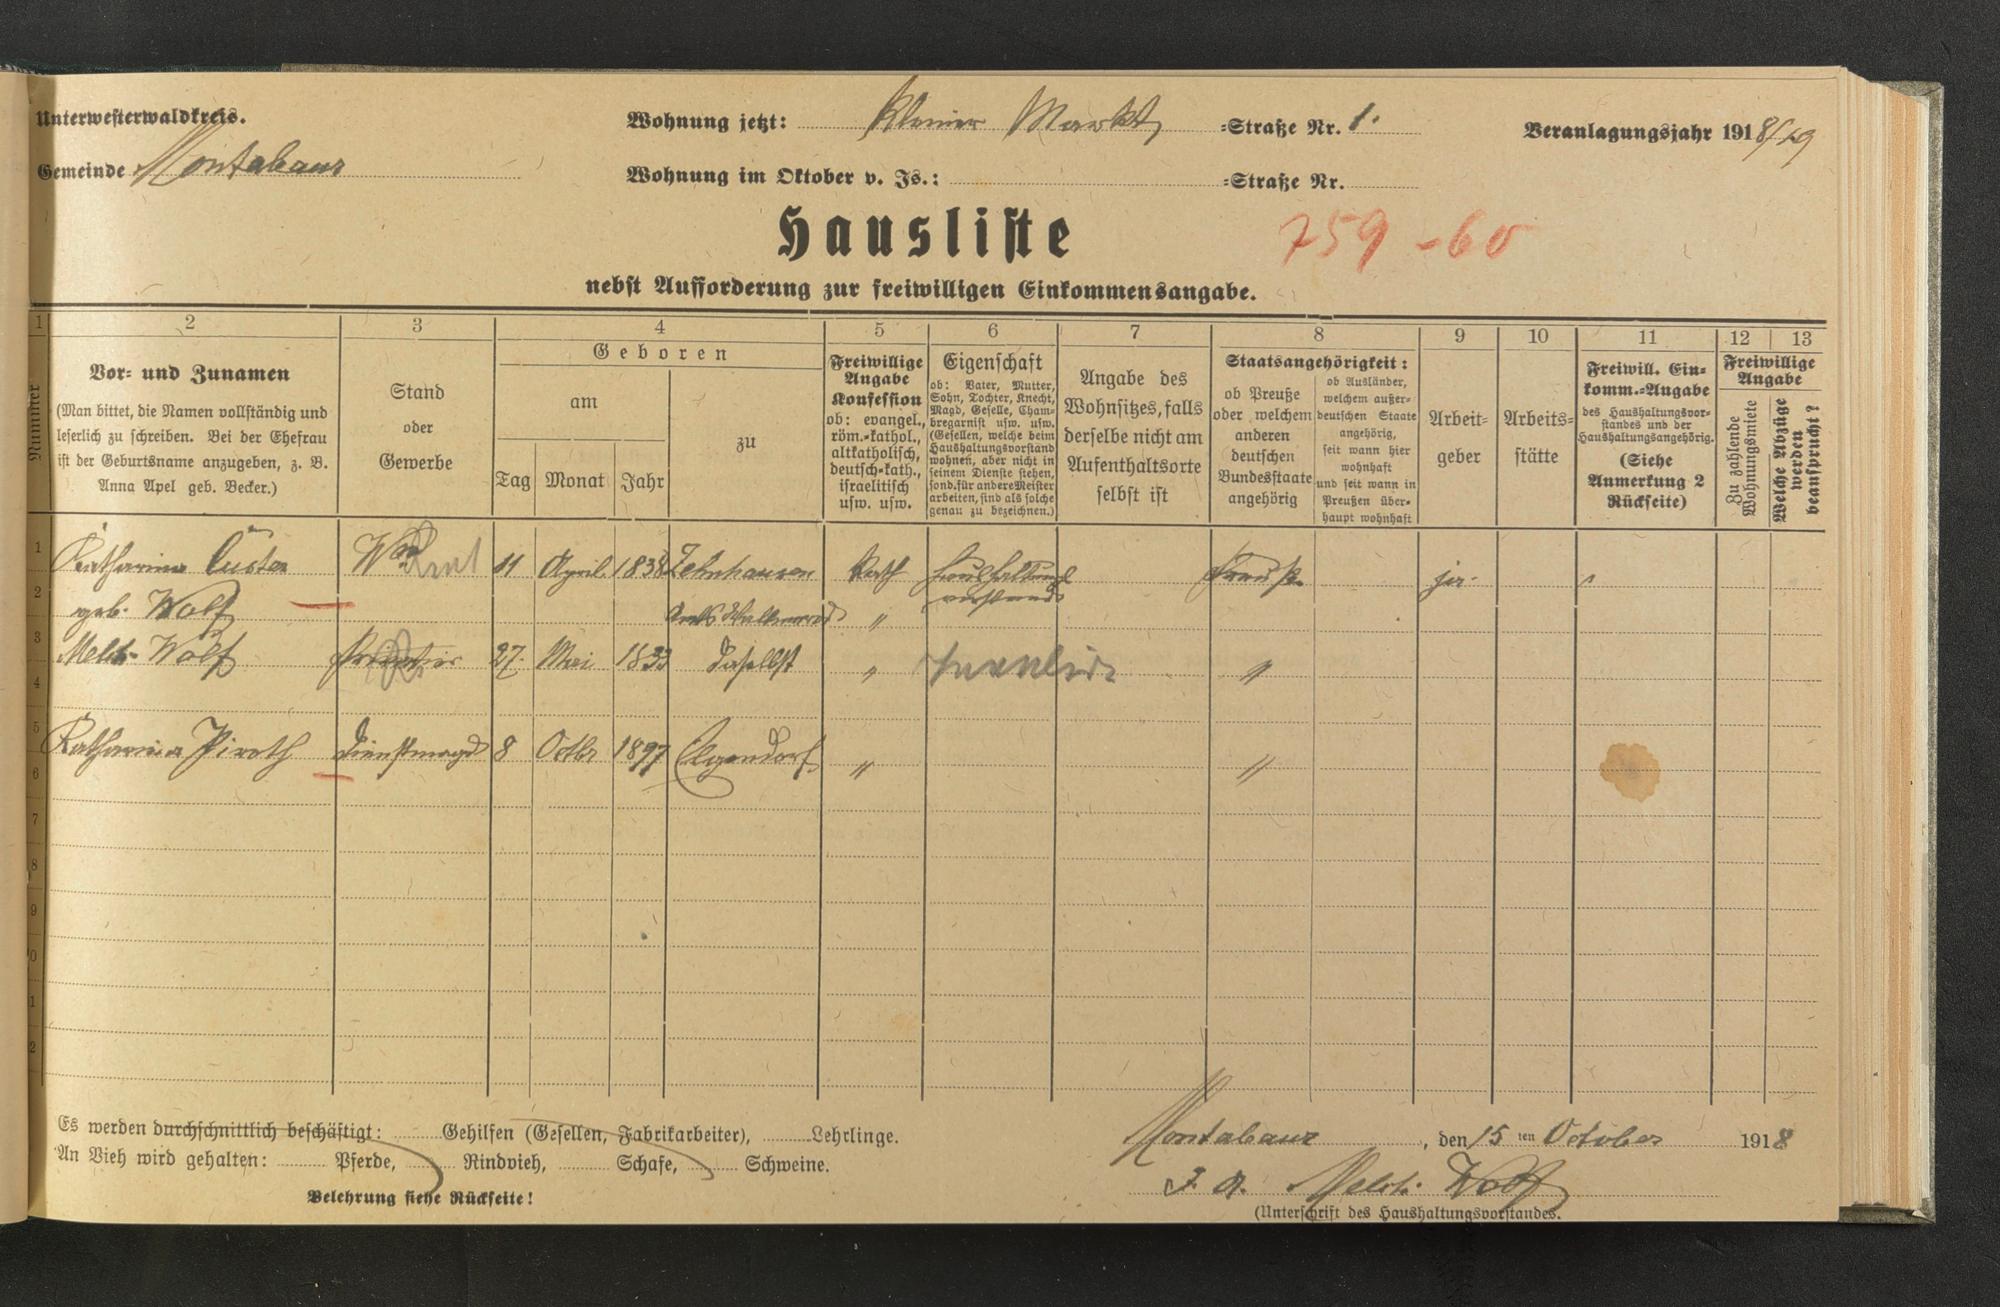 Unterwesterwaldkreis.
Gemeinde Montabaur
Wohnung jetzt: Kleiner Markt =Straße Nr. 1.
Wohnung im Oktober v. Js.: =Straße Nr.
Veranlagungsjahr 1918/19
Hausliste
759-60
nebst Aufforderung zur freiwilligen Einkommensangabe.
1 2 3 4 5 6 7 8 9 10 11 12 13
Nummer
Vor- und Zunamen
(Man bittet, die Namen vollständig und
leserlich zu schreiben. Bei der Ehefrau
ist der Geburtsname anzugeben, z. B.
Anna Apel geb. Becker.)
Stand
oder
Gewerbe
Geboren
am
Tag Monat Jahr
zu
Freiwillige
Angabe
Konfession
ob: evangel.,
röm.-kathol.,
altkatholisch,
deutsch-kath.,
israelitisch
usw. usw.
Eigenschaft
ob: Vater, Mutter,
Sohn, Tochter, Knecht,
Magd, Geselle, Cham-
bregarnist usw. usw.
(Gesellen, welche beim
Haushaltungsvorstand
wohnen, aber nicht in
seinem Dienste stehen,
sond. für andere Meister
arbeiten, sind als solche
genau zu bezeichnen.)
Angabe des
Wohnsitzes, falls
derselbe nicht am
Aufenthaltsorte
selbst ist
Staatsangehörigkeit:
ob Preuße
oder welchem
anderen
deutschen
Bundesstaate
angehörig
ob Ausländer,
welchem außer-
deutschen Staate
angehörig,
seit wann hier
wohnhaft
und seit wann in
Preußen über-
haupt wohnhaft
Arbeit-
geber
Arbeits-
stätte
Freiwill. Ein-
komm.-Angabe
des Haushaltungsvor-
standes und der
Haushaltungsangehörig.
(Siehe
Anmerkung 2
Rückseite)
Freiwillige
Angabe
Zu zahlende
Wohnungsmiete
Welche Abzüge
werden
beansprucht?
1 Katharina Custer 11 April 1838 Zehnhausen Kath Haushaltungs Preuße ja.
2 geb. Wolf vorstand "
3 Melch. Wolf Privatier 27. Mai 1833 daselbst " Invalide "
4
5 Katharina Piroth Dienstmagd 8 Octbr 1897 Elgendorf " "
6
7
8
9
0
1
2
Es werden durchschnittlich beschäftigt: Gehilfen (Gesellen, Fabrikarbeiter), Lehrlinge.
An Vieh wird gehalten: Pferde, Rindvieh, Schafe, Schweine.
Belehrung siehe Rückseite!
Montabaur, den 15ten October 1918
I. A. Melch. Wolf
(Unterschrift des Haushaltungsvorstandes.